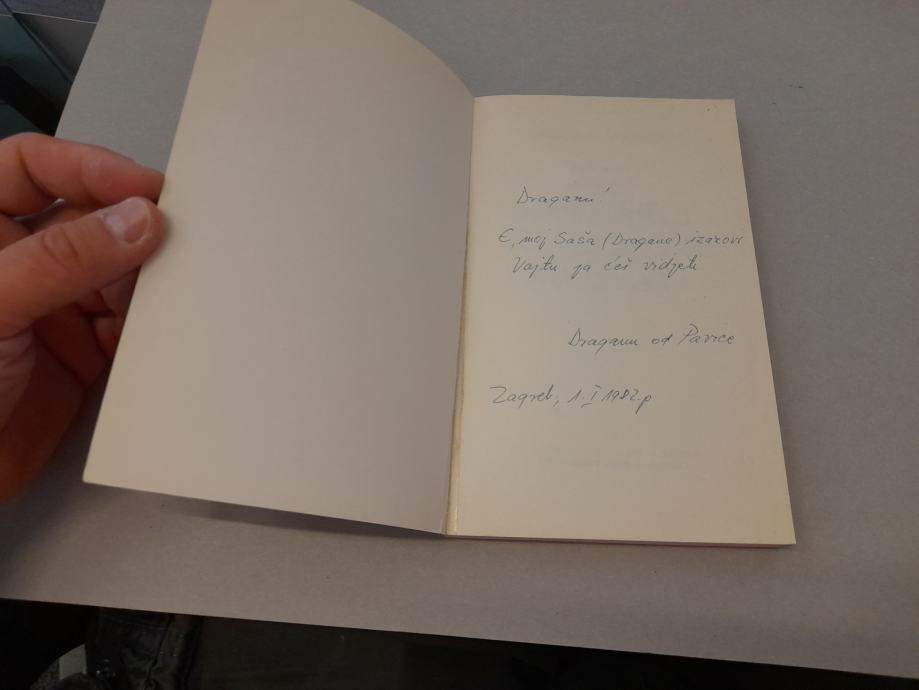 Draganu!
E, moj Saša (Dragane) izazovi
Vajtu pa ćeš vidjeti
Draganu od Pavice
Zagreb, 1. I 1982.